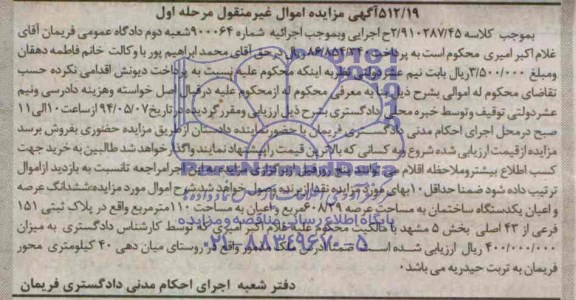 ۵۱۲/۱۹آگهی مزایده اموال غیرمنقول مرحله اول
بموجب کلاسه ۲/۹۱۰۲۸۷/۴۵ح اجرایی وبموجب اجرائیه شماره ۹۰۰۰۶۴شعبه دوم دادگاه عمومی فریمان آقای
غلام اکبر امیری محکوم است به پرداخت ۸۶/۸۵۴/۳۴۰ریال درحق آقای محمد ابراهیم پور با وکالت خانم فاطمه دهقان
ومبلغ ۳/۵۰۰/۰۰۰ریال بابت نیم عشردولتی نظر به اینکه محکوم علیه نسبت به پرداخت دیونش اقدامی نکرده حسب
تقاضای محکوم له اموالی بشرح ذیل بنا به معرفی محکوم له ازمحکوم علیه درقبال اصل خواسته وهزینه دادرسی ونیم
عشردولتی توقیف وتوسط خبره محلی دادگستری بشرح ذیل ارزیابی ومقرر گردیده درتاریخ ۹۴/۰۵/۰۷ ازساعت ۱۰الی۱۱
صبح درمحل اجرای احکام مدنی دادگستری فریمان با حضور نماینده دادستان از طریق مزایده حضوری بفروش برسد
مزایده ازقیمت ارزیابی شده شروع وبه کسانی که بالاترین قیمت را پیشنهاد نمایند واگذار خواهد شد طالبین به خرید جهت
کسب اطلاع بیشتر وملاحظه اقلام می توانند پنج روز قبل از برگزاری مزایده به این اجرا مراجعه تا نسبت به بازدید ازاموال
ترتیب داده شود ضمنا حداقل ۱۰بهای مورد مزایده نقدا از برنده وصول خواهد شد.شرح اموال مورد مزایده:ششدانگ عرصه
و اعیان یکدستگاه ساختمان به مساحت عرصه ۶۰۸/۲۹مترمربع واعیان به مساحت ۱۱۰مترمربع واقع در پلاک ثبتی ۱۵۱
فرعی از ۴۳ اصلی بخش ۵ مشهد با مالکیت محکوم علیه غلام اکبر امیری که توسط کارشناس دادگستری به میزان
۴۰۰/۰۰۰/۰۰۰ ریال ارزیابی شده است. ضمنا آدرس ملک مذکور واقع در روستای میان دهی ۴۰ کیلومتری محور
فریمان به تربت حیدریه می باشد.
دفتر شعبه اجرای احکام مدنی دادگستری فریمان
ParsNamadData
پایگاه اطلاع رسانی مناقصه و مزایده
۰۲۱-۸۸۳۴۹۶۷۰-۵